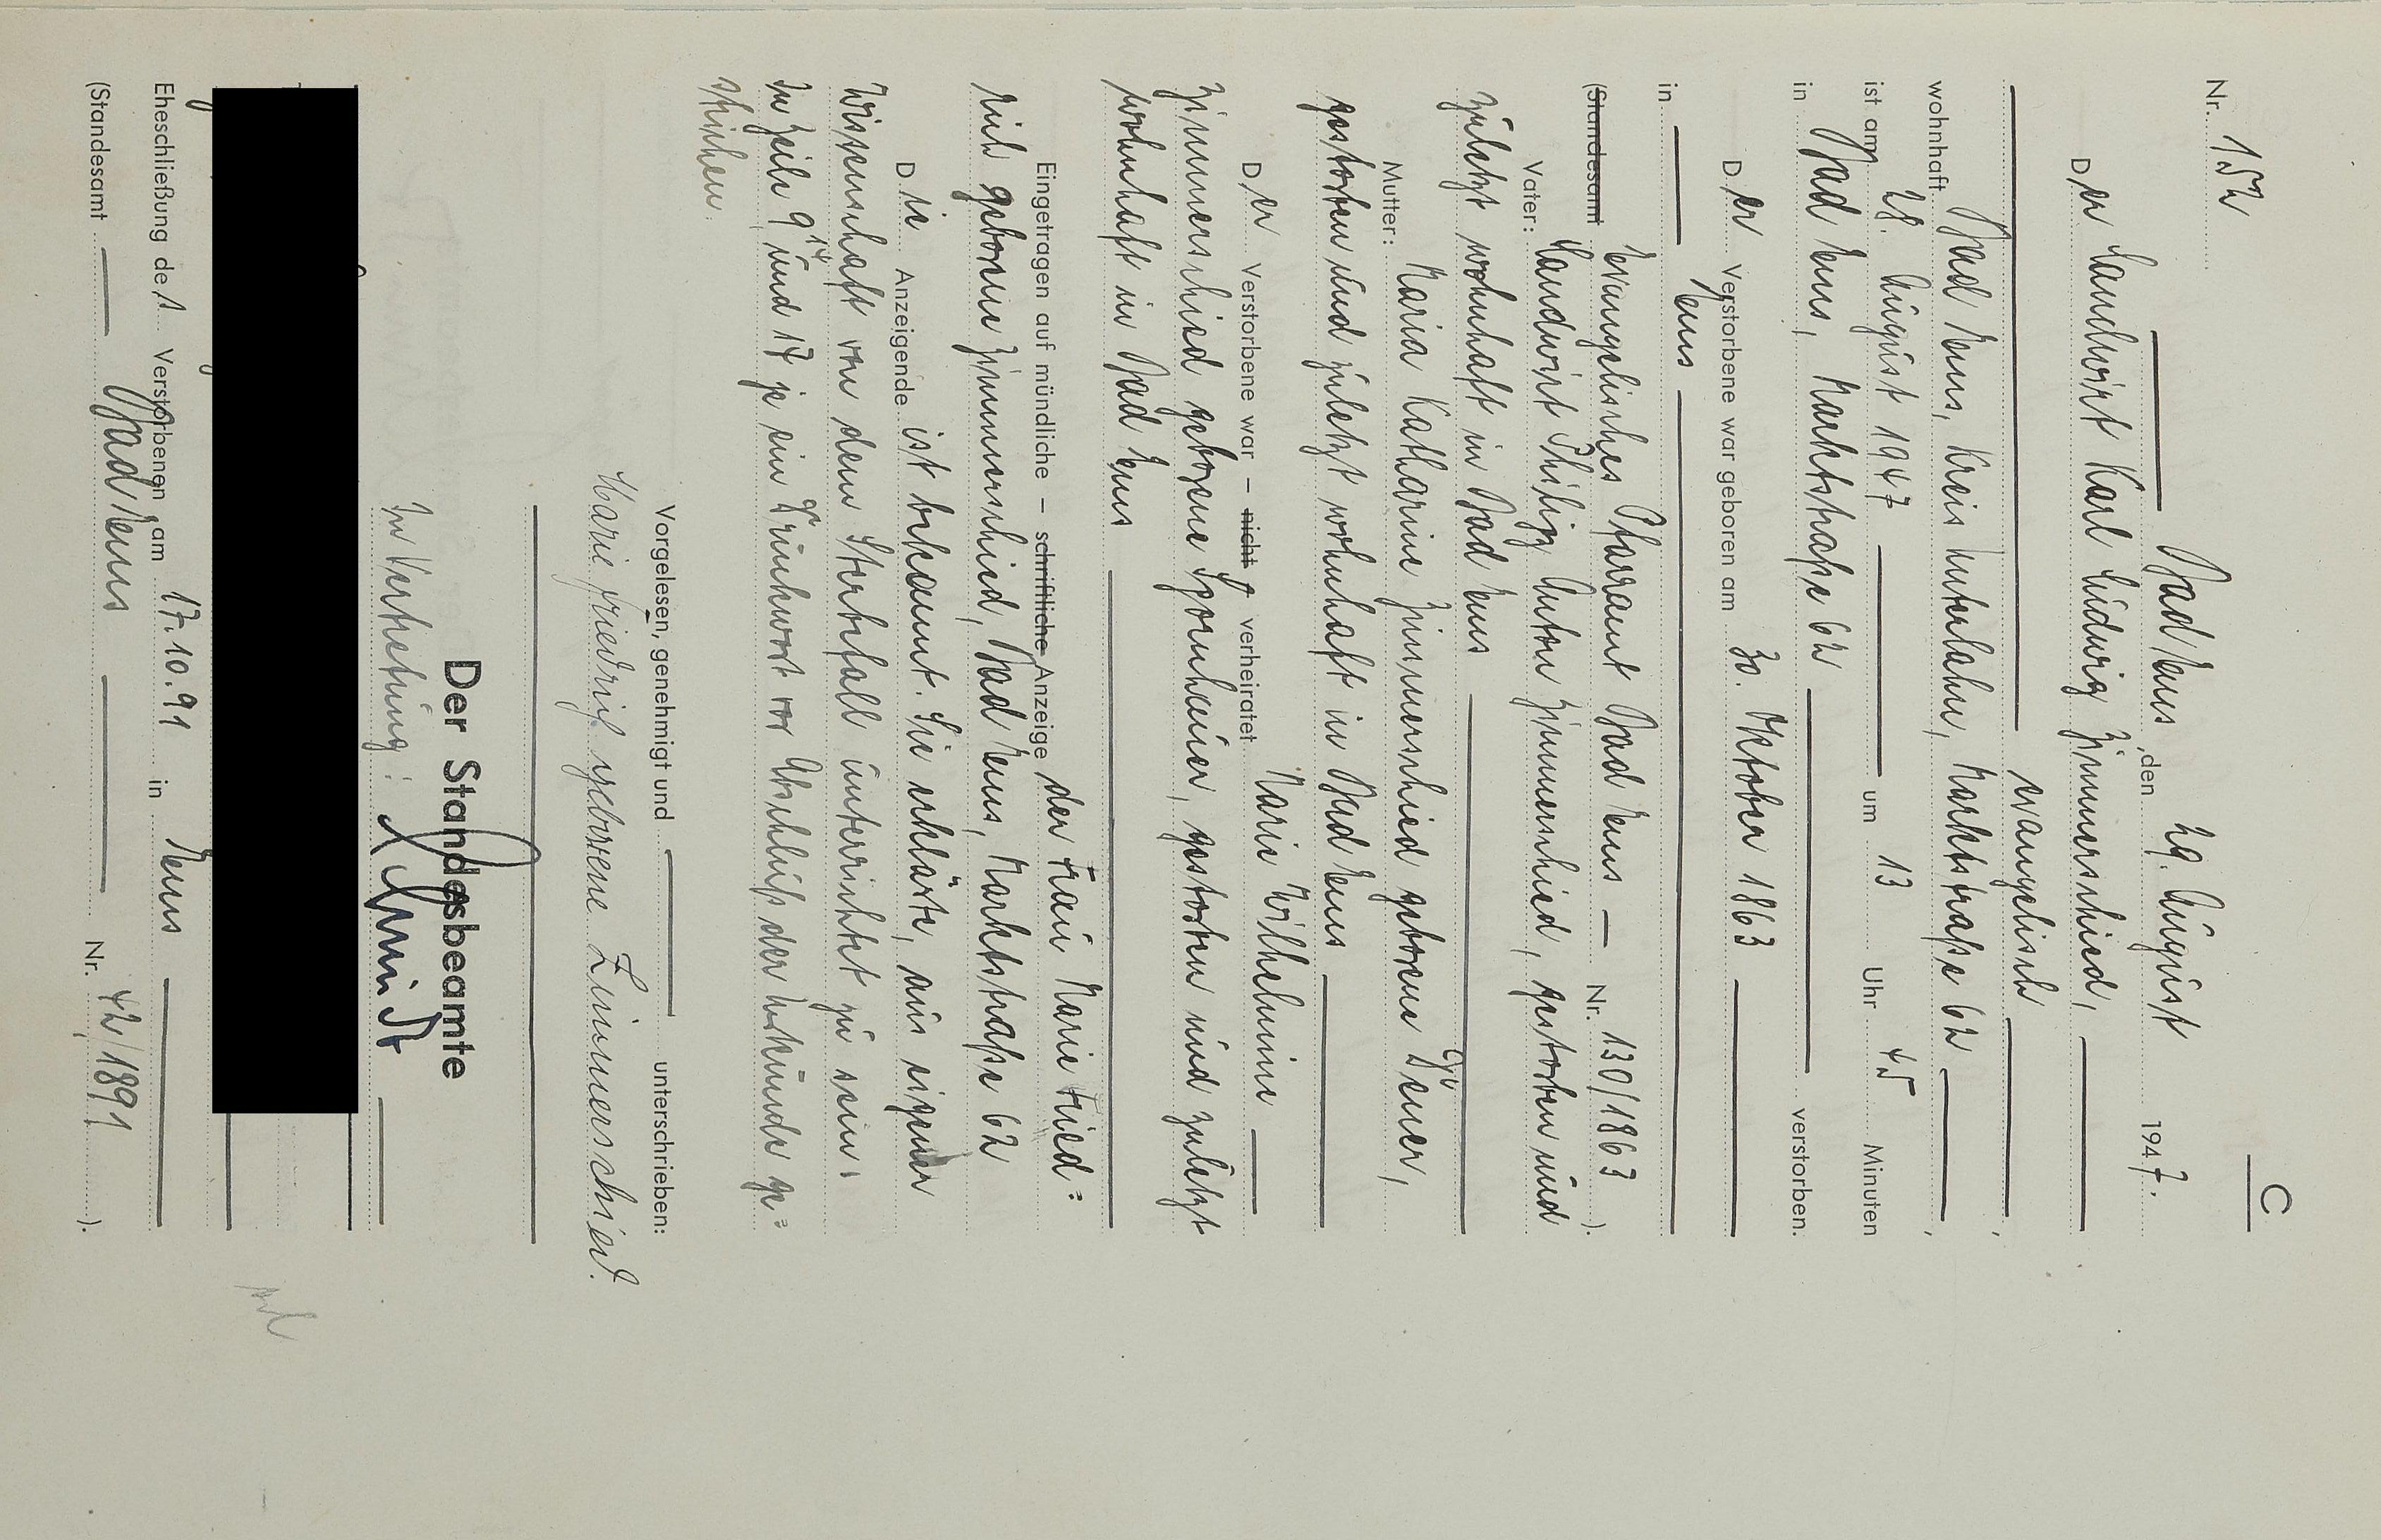 C
Nr. 152
Bad Ems, den 29. August 1947.
Der Landwirt Karl Ludwig Zimmerschied,
evangelisch,
wohnhaft Bad Ems, Kreis Unterlahn, Marktstraße 62,
ist am 28. August 1947 um 13 Uhr 45 Minuten
in Bad Ems, Marktstraße 62 verstorben.
Der Verstorbene war geboren am 30. Oktober 1863
in Ems
(Standesamt Evangelisches Pfarramt Bad Ems — Nr. 130/1863).
Vater: Landwirt Philipp Anton Zimmerschied, gestorben und
zuletzt wohnhaft in Bad Ems
Mutter: Maria Katharine Zimmerschied geborene
gestorben und zuletzt wohnhaft in Bad Ems
Der Verstorbene war – nicht – verheiratet Marie Wilhelmine
Zimmerschied geborene Spornhauer, gestorben und zuletzt
wohnhaft in Bad Ems
Eingetragen auf mündliche – schriftliche Anzeige der Frau Marie Fried=
rich geborene Zimmerschied, Bad Ems, Marktstraße 62
Die Anzeigende ist bekannt. Sie erklärte, aus eigener
Wissenschaft von dem Sterbefall unterrichtet zu sein.
In Zeile 9, 14 und 17 je ein Druckwort vor Abschluß der Urkunde ge=
strichen.
Vorgelesen, genehmigt und unterschrieben:
Marie Friedrich geborene Zimmerschied.
Der Standesbeamte
In Vertretung: Schmidt
Eheschließung des Verstorbenen am 17.10.91 in Ems
(Standesamt Bad Ems Nr. 42/1891).